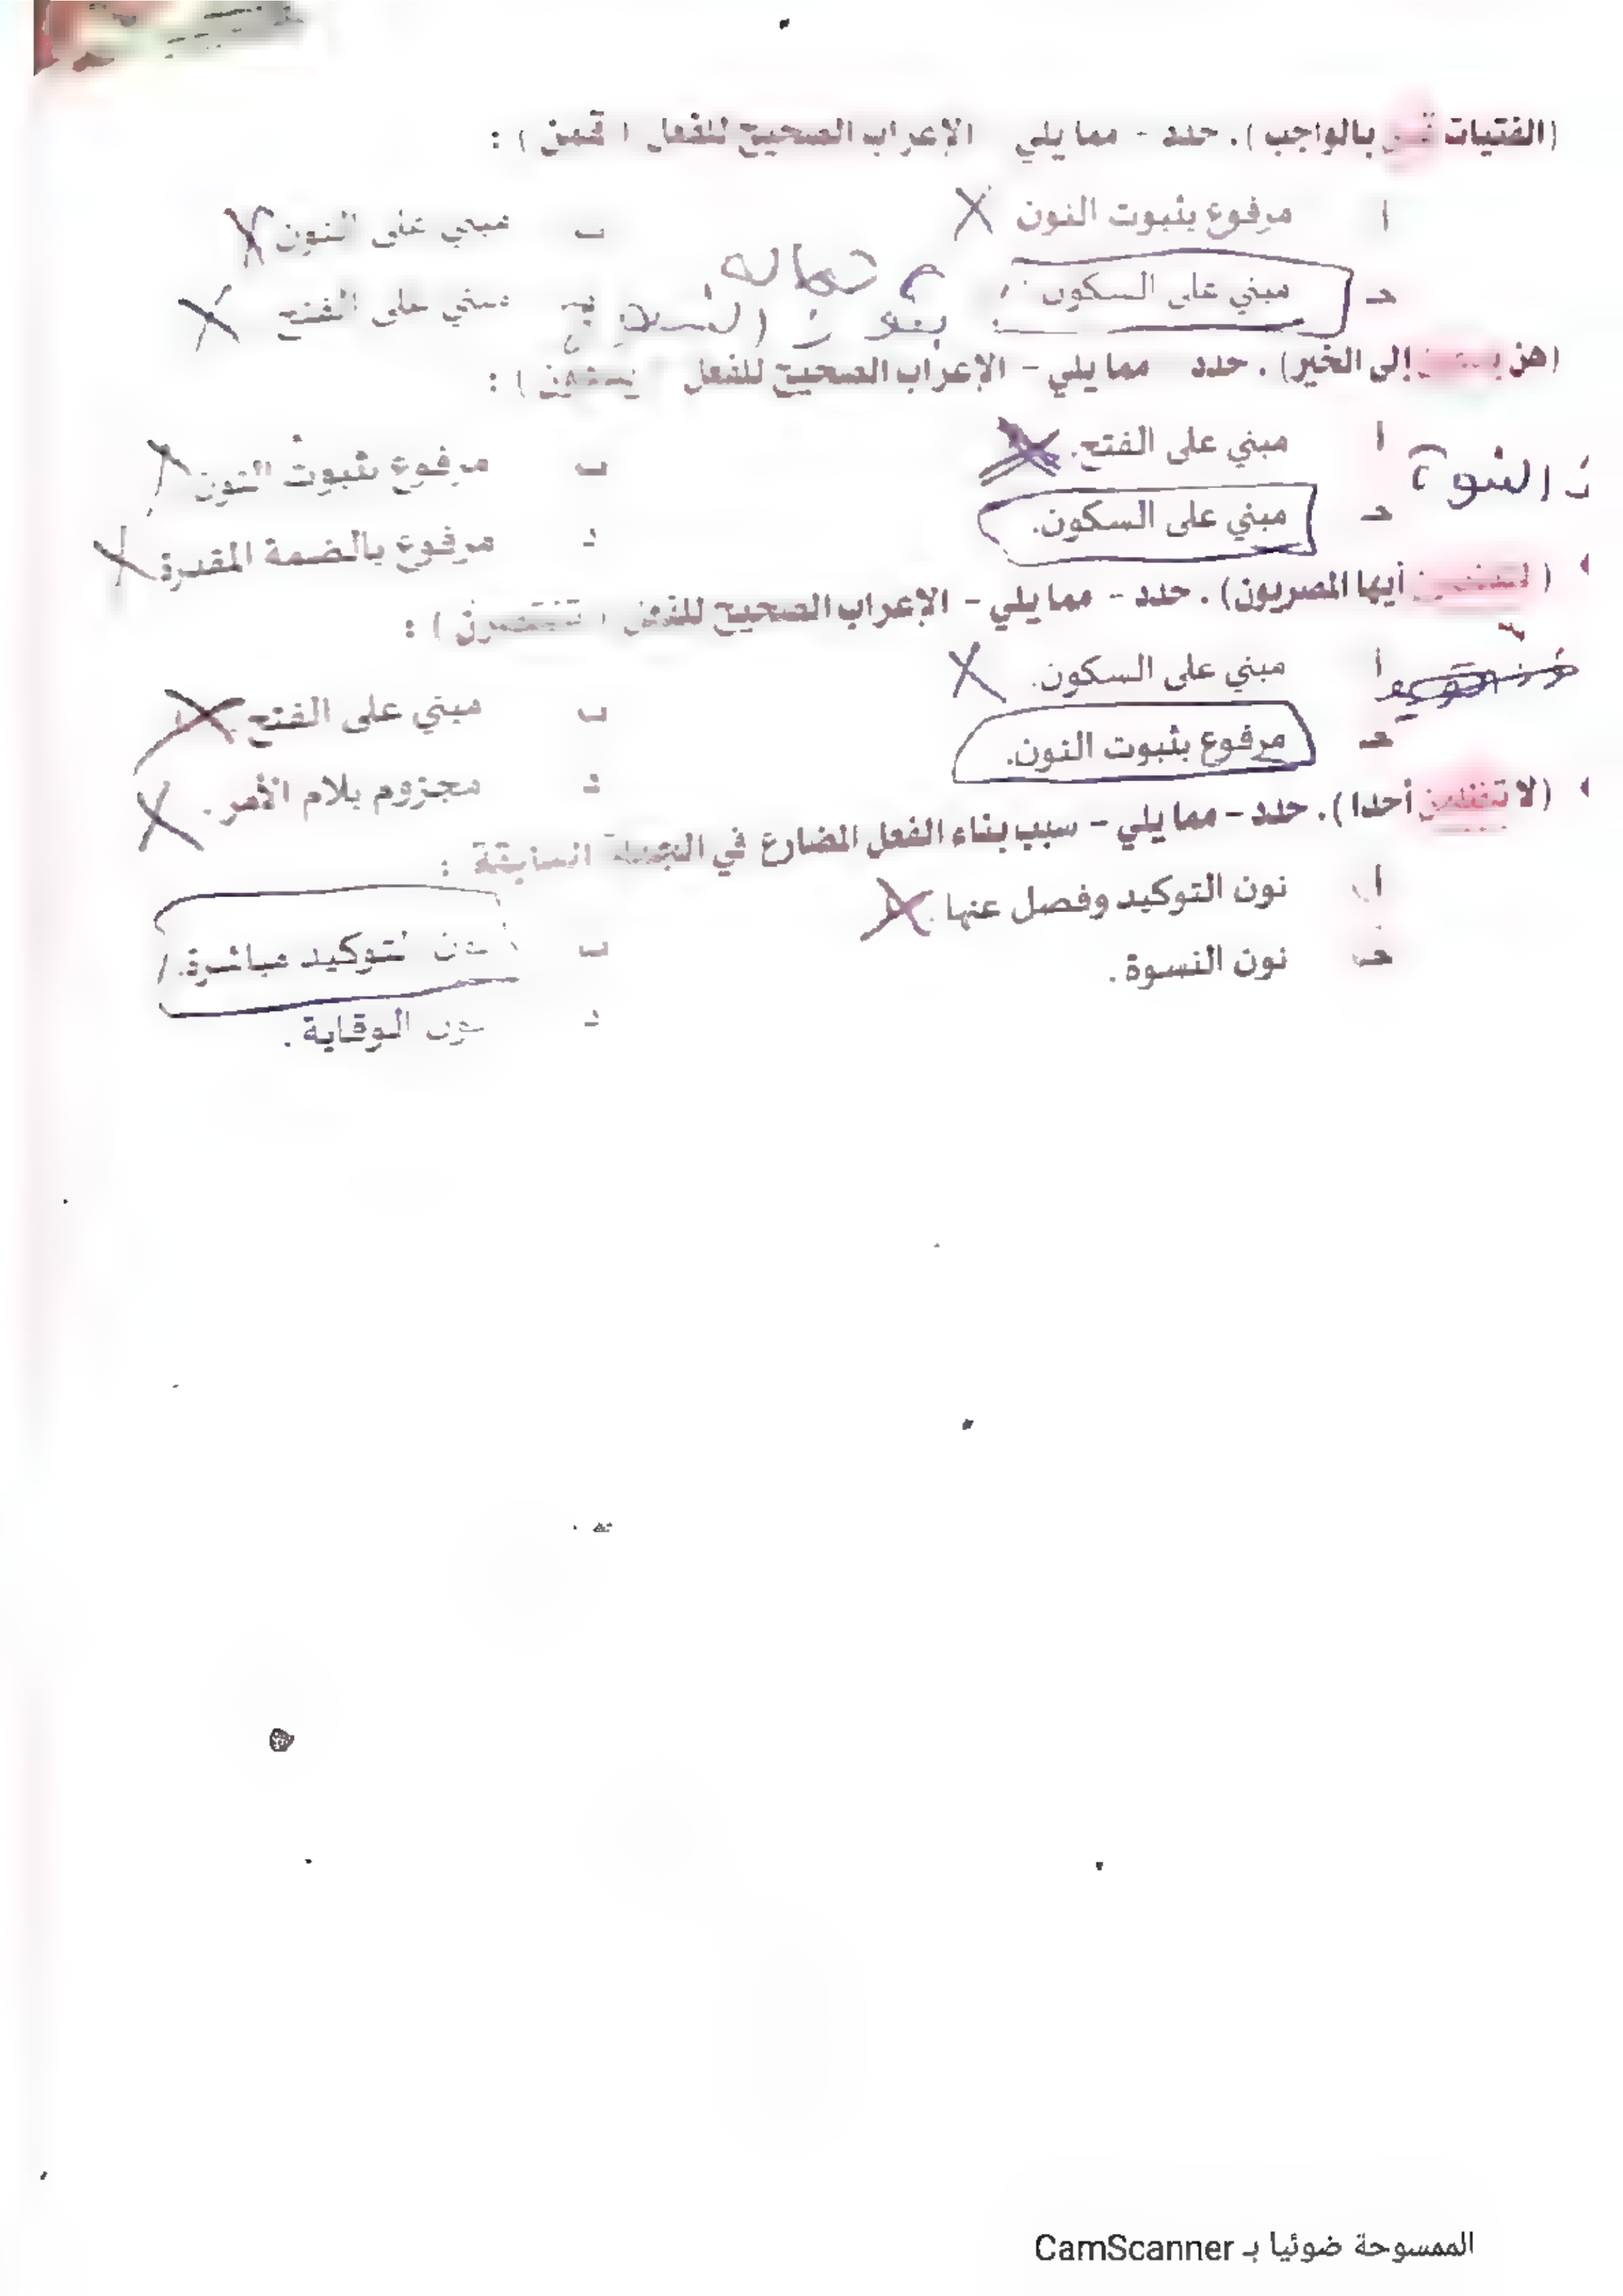 (الفتيات بالواجب). حدد - مما يلي الإعراب الصحيح للفعل (قمن) :
أ مرفوع بثبوت النون
ب مبني على النون
جـ مبني على السكون
مبني على الفتح
(هن إلى الخير). حدد مما يلي - الإعراب الصحيح للفعل :
أ مبني على الفتح.
ب مرفوع بثبوت النون
النسوة
جـ مبني على السكون.
د مرفوع بالضمة المقدرة
( أيها المصريون). حدد - مما يلي - الإعراب الصحيح للفعل :
أ مبني على السكون.
ب مبني على الفتح
جـ مرفوع بثبوت النون.
د مجزوم بلام الأمر.
(لا أحدا). حدد - مما يلي - سبب بناء الفعل المضارع في الجملة السابقة :
أ نون التوكيد وفصل عنها.
ب نون التوكيد مباشرة.
جـ نون النسوة.
د نون الوقاية.
الممسوحة ضوئيا بـ CamScanner